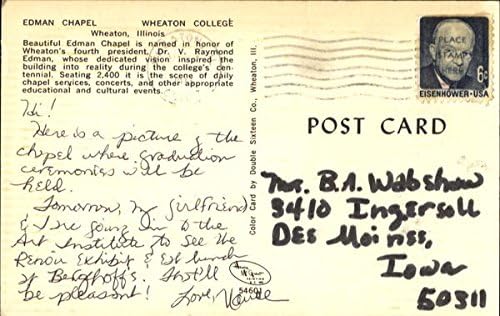 EDMAN CHAPEL WHEATON COLLEGE
Wheaton, Illinois
Beautiful Edman Chapel is named in honor of
Wheaton's fourth president, Dr. V. Raymond
Edman, whose dedicated vision inspired the
building into reality during the college's cen-
tennial. Seating 2,400 it is the scene of daily
chapel services, concerts, and other appropriate
educational and cultural events.
Hi!
Here is a picture of the
chapel where graduation
ceremonies will be
held.
Tomorrow, my girlfriend
& I are going in to the
Art Institute to see the
Renoir Exhibit & eat lunch
at Berghoff's. It will
be pleasant!
Love,
Color Card by Double Sixteen Co., Wheaton, Ill.
54601
PLACE
6c
EISENHOWER·USA
POST CARD
Mrs. B.A. Wabshaw
3410 Ingersoll
Des Moines,
Iowa
50311